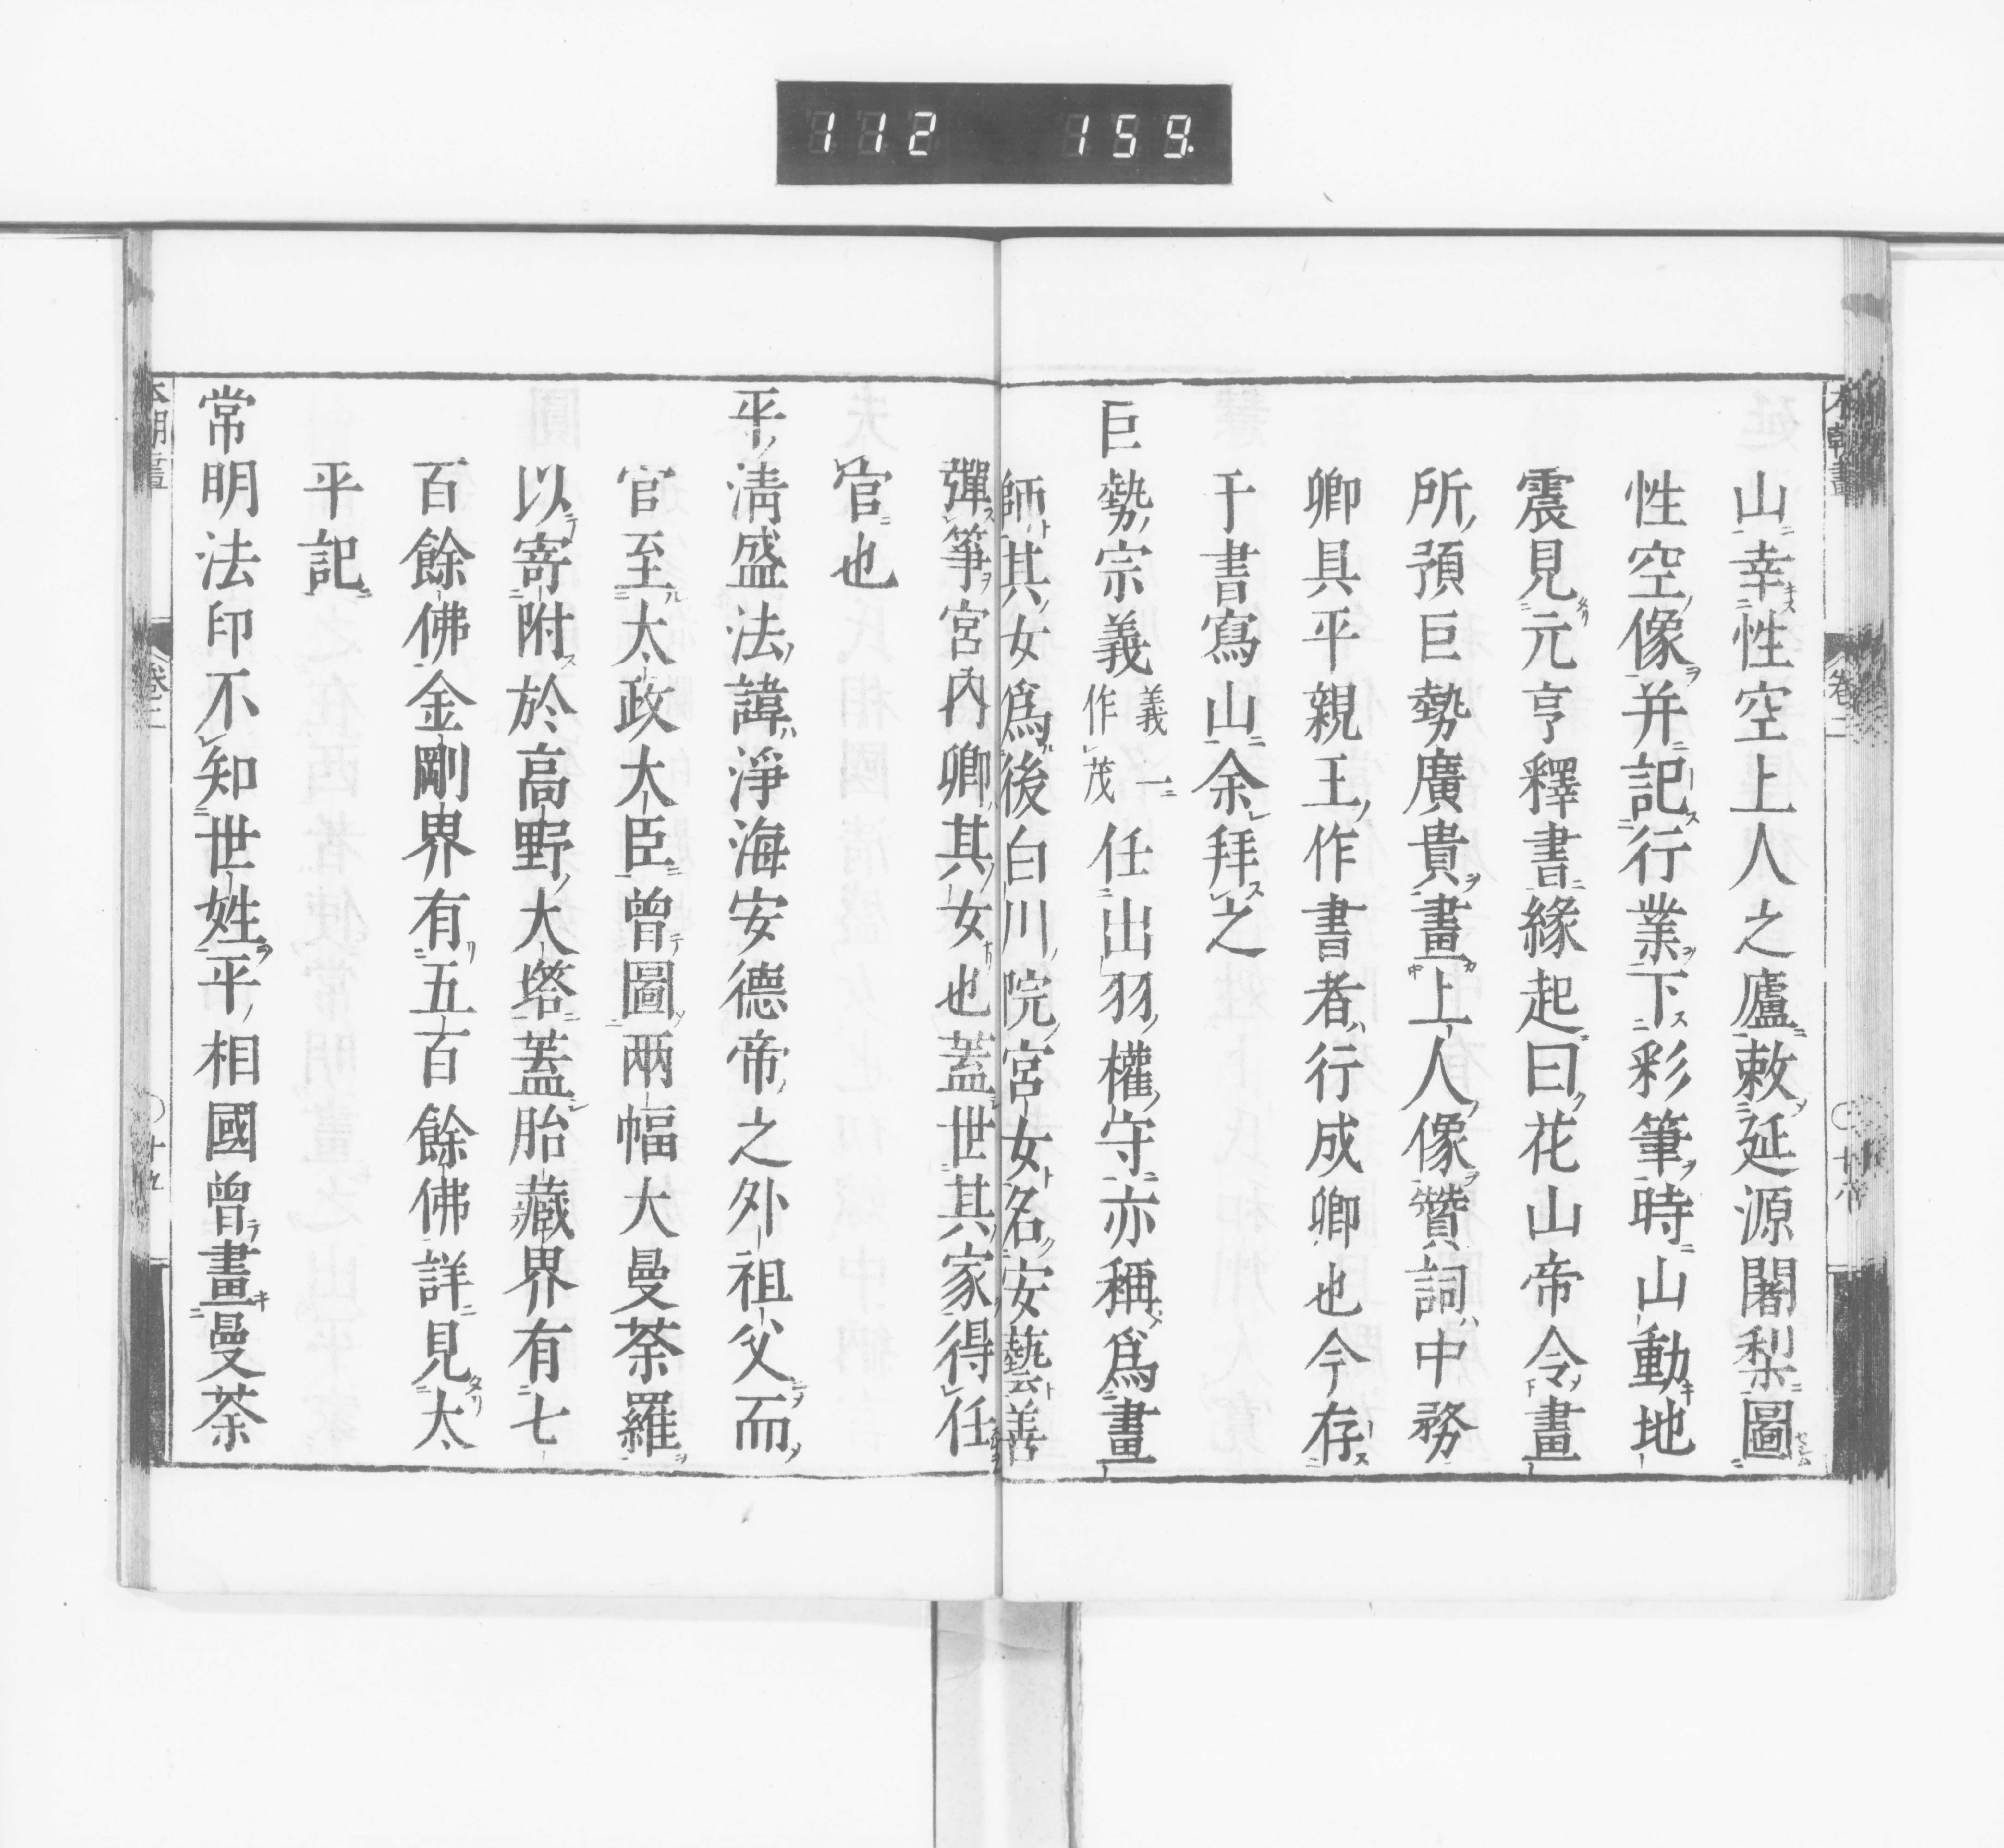 112 159.
山幸性空上人之廬敕延源闍梨圖
性空像并記行業下彩筆時山動地
震見元亨釋書緣起曰花山帝令畫
所預巨勢廣貴畫上人像贊詞中務
卿具平親王作書者行成卿也今存
于書寫山余拜之
巨勢宗義義一作茂任出羽權守亦稱爲畫
師其女爲後白川院宮女名安藝善
彈箏宮內卿其女也蓋世其家得任
官也
平清盛法諱淨海安德帝之外祖父而
官至太政大臣曾圖兩幅大曼荼羅
以寄附於高野大塔蓋胎藏界有七
百餘佛金剛界有五百餘佛詳見太
平記
常明法印不知世姓平相國曾畫曼荼
卷二
卷二
十九